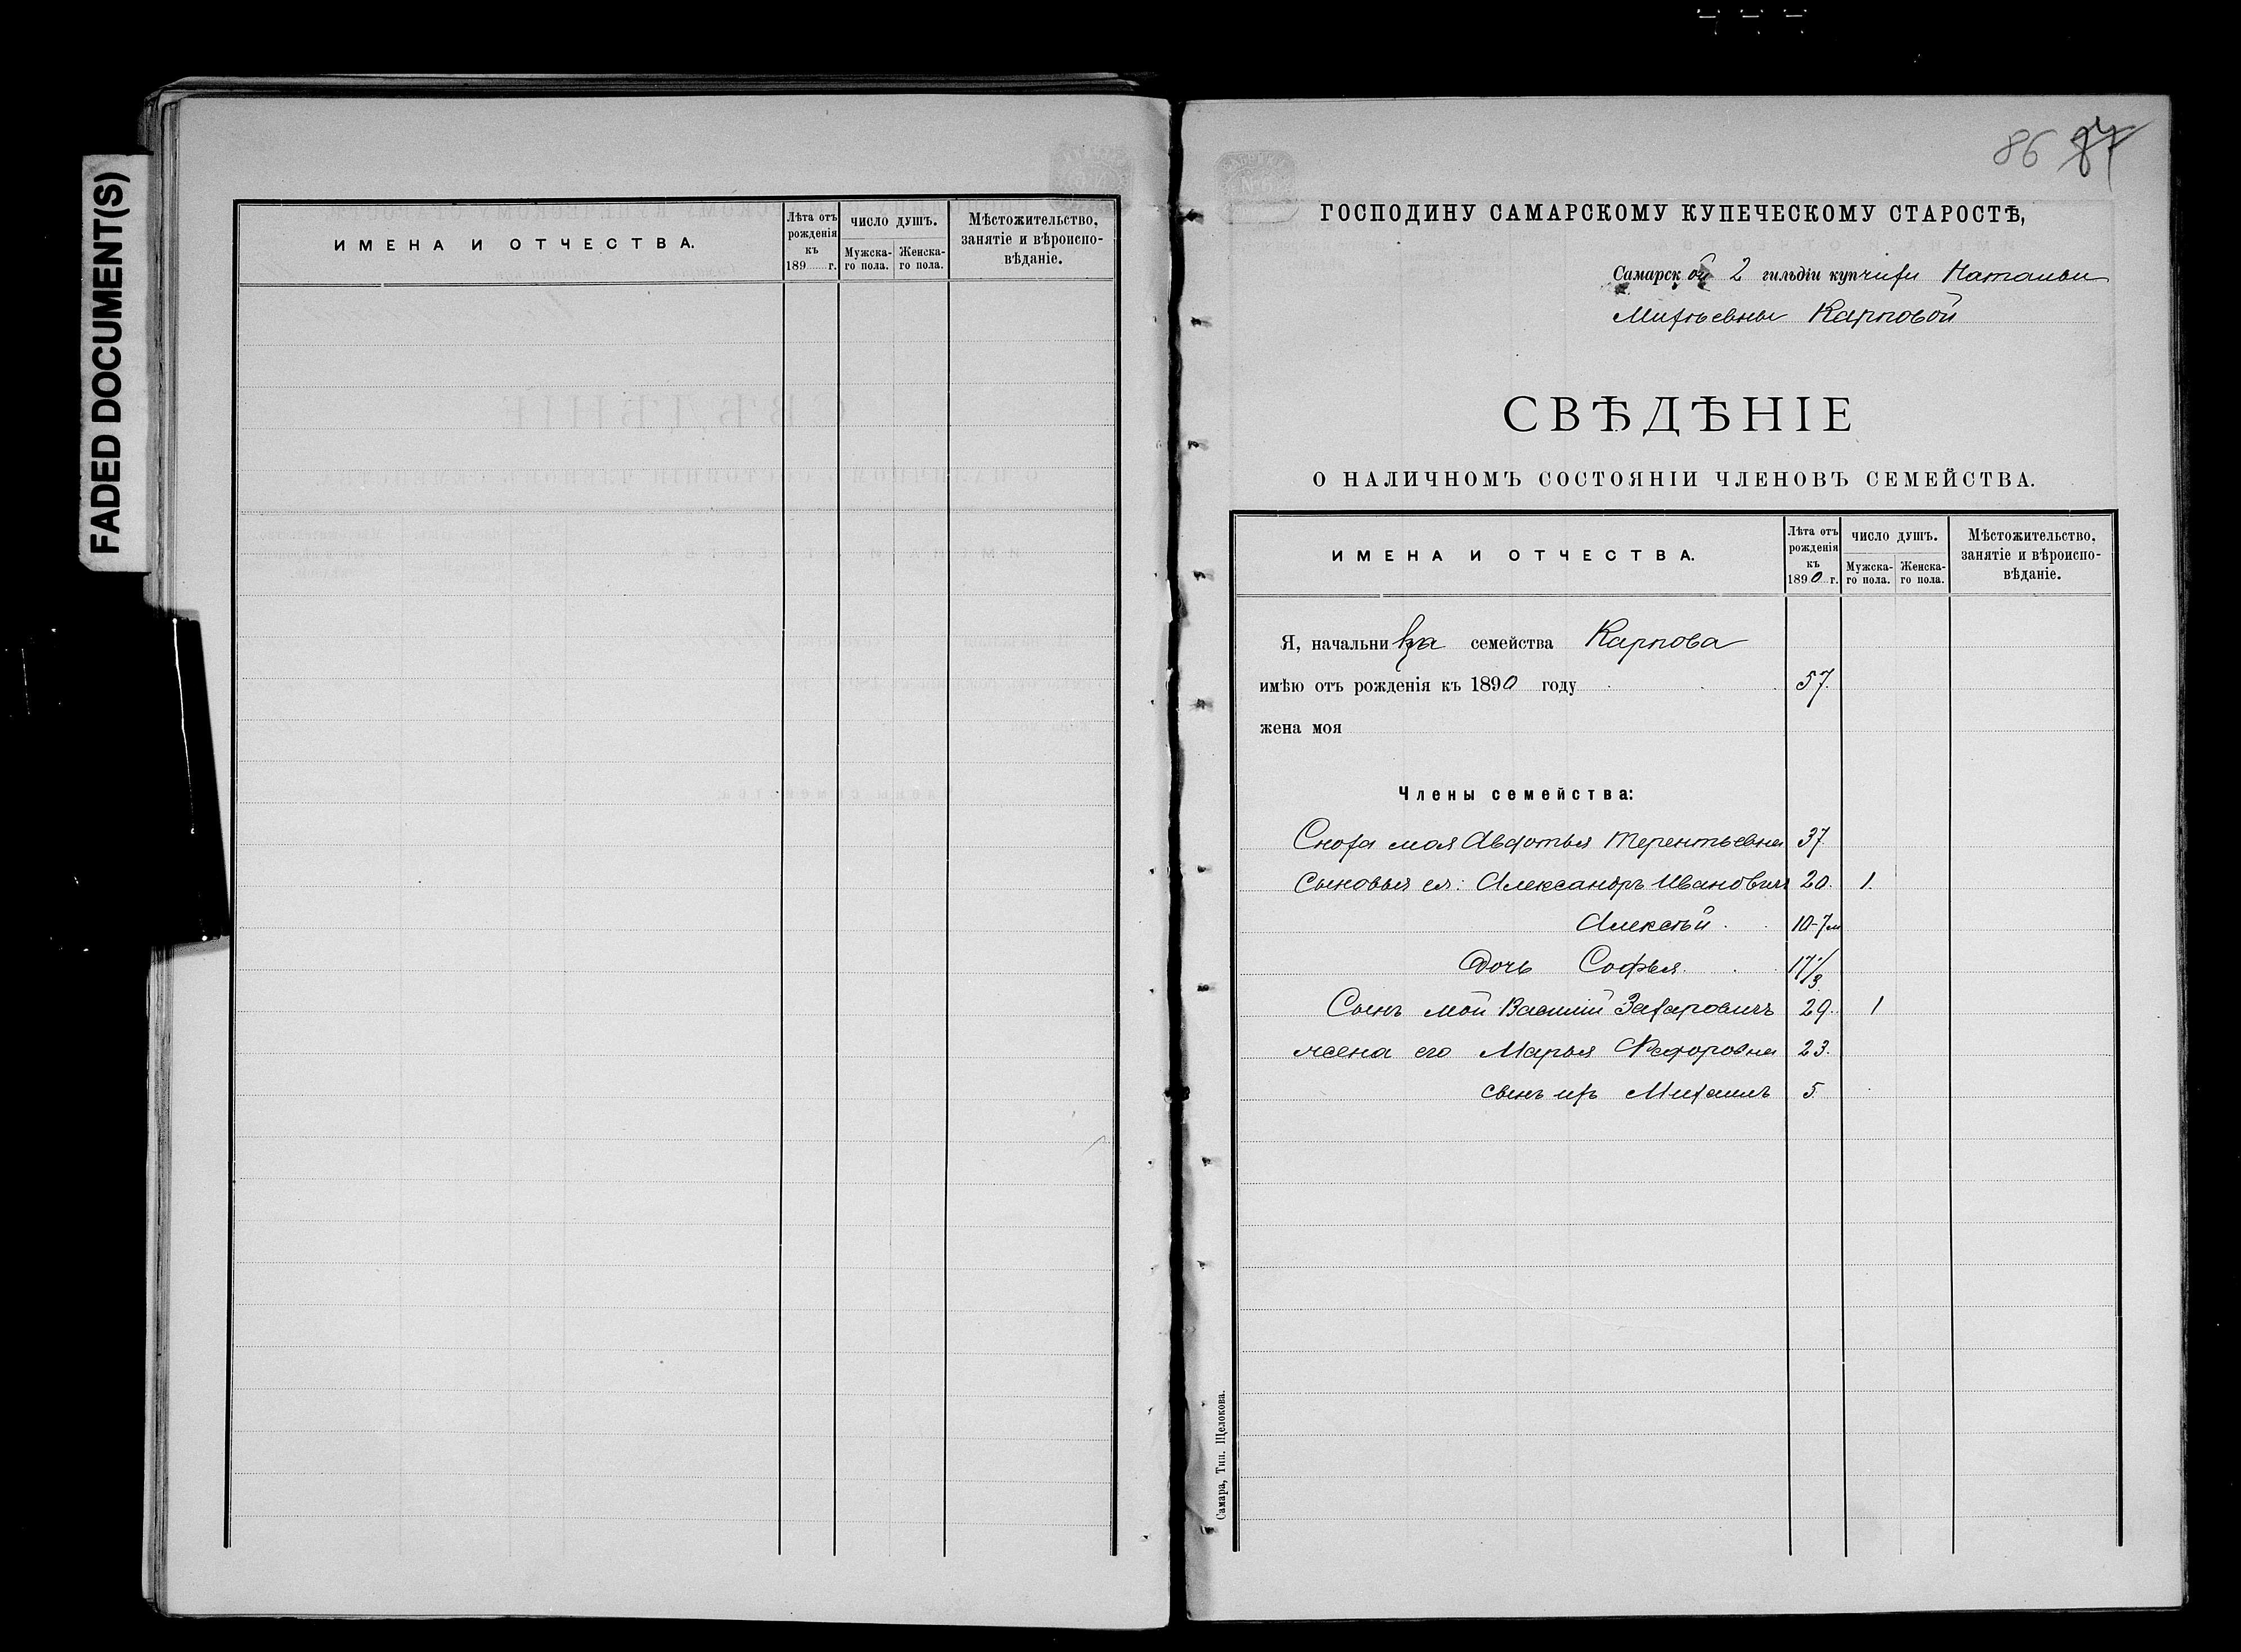 FADED DOCUMENT(S)
ИМЕНА И ОТЧЕСТВА.
Лѣта отъ рожденія къ 189 г.
ЧИСЛО ДУШЪ.
Мужска-го пола.
Женска-го пола.
Мѣстожительство, занятіе и вѣроиспо-вѣданіе.
86 87
№ 6
ГОСПОДИНУ САМАРСКОМУ КУПЕЧЕСКОМУ СТАРОСТѢ,
Самарской 2 гильдіи купчихи Натальи
Михѣевны Карповой
СВѢДѢНІЕ
О НАЛИЧНОМЪ СОСТОЯНІИ ЧЛЕНОВЪ СЕМЕЙСТВА.
ИМЕНА И ОТЧЕСТВА.
Лѣта отъ рожденія къ 1890 г.
ЧИСЛО ДУШЪ.
Мужска-го пола.
Женска-го пола.
Мѣстожительство, занятіе и вѣроиспо-вѣданіе.
Я, начальница семейства Карпова
имѣю отъ рожденія къ 1890 году 57.
жена моя
Члены семейства:
Сноха моя Авдотья Терентьевна 37.
Сыновья ея: Александръ Ивановичъ 20. 1.
Алексѣй 10-7м
Дочь Софья 17/3
Сынъ мой Василій Захаровичъ 29. 1
жена его Марья Федоровна 23.
сынъ ихъ Михаилъ 5.
Самара, Тип. Щелокова.